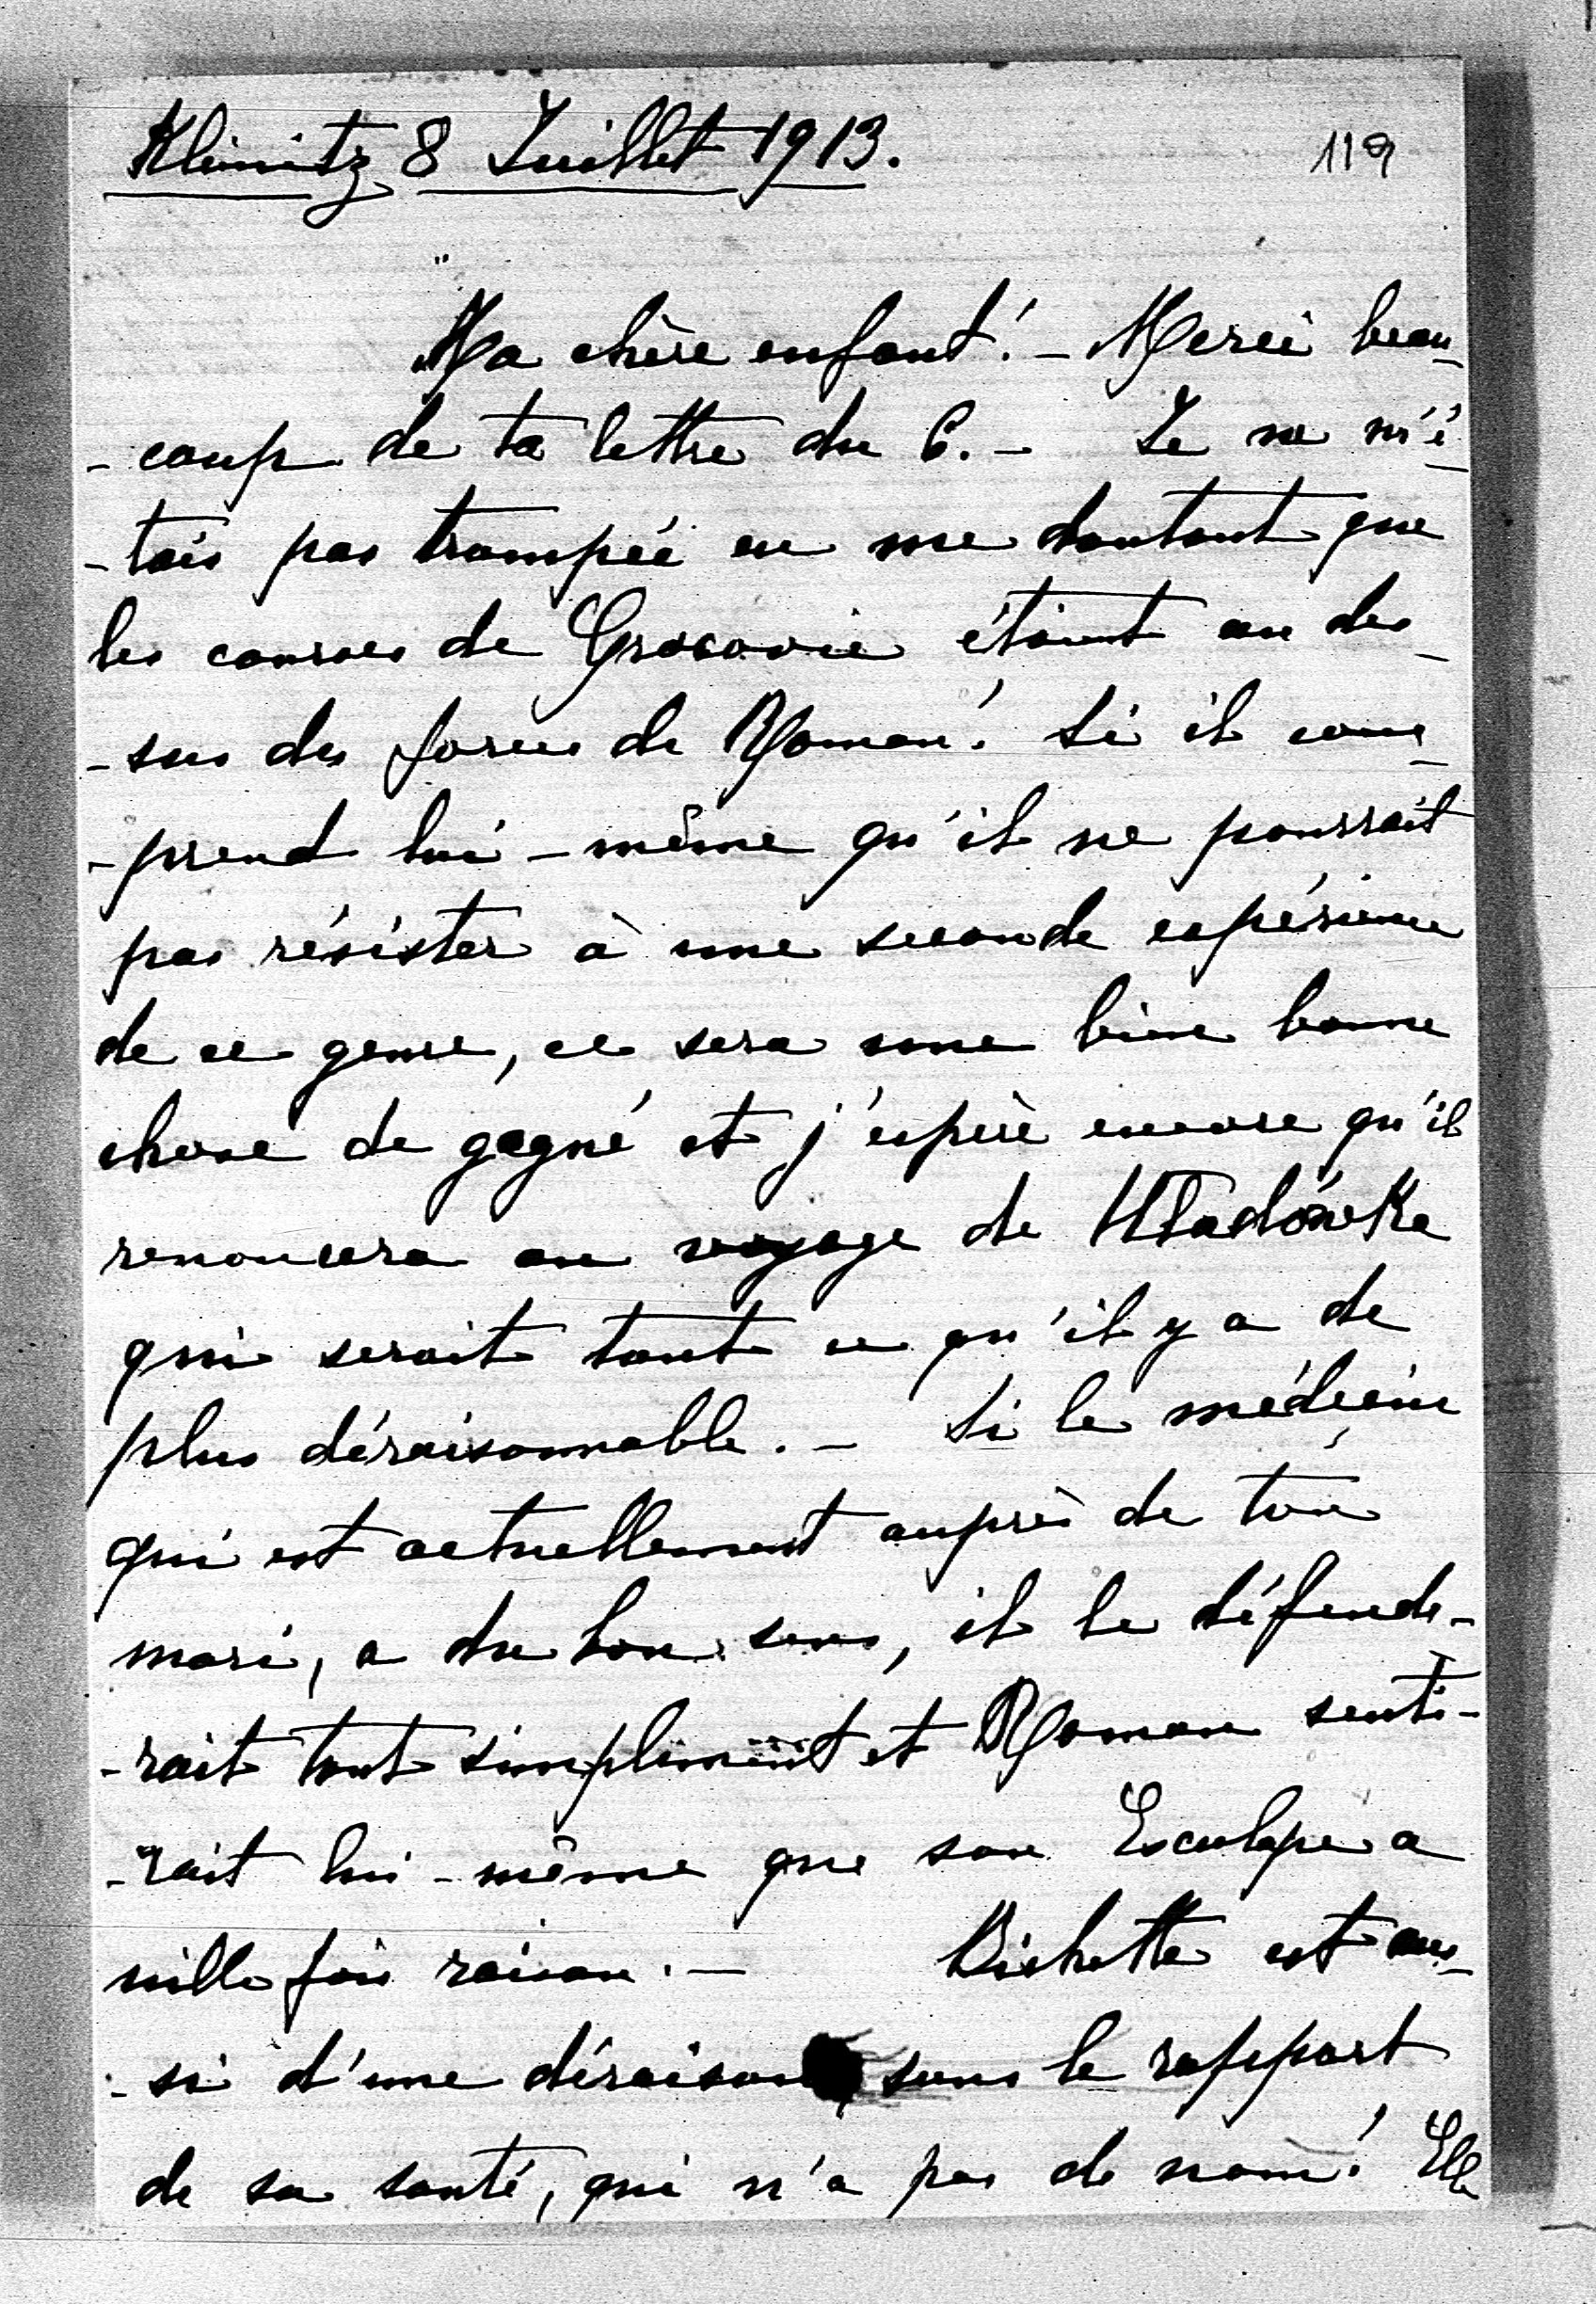 Klimitz 8 Juillet 1913.
119
Ma chère enfant! - Merci beau-
-coup de ta lettre du 6. - Je ne m'é-
-tais pas trompée en me doutant que
les courses de Cracovie étaient au des-
-sus des forces de Roman! Si il com-
-prend lui-même qu'il ne pourrait
pas résister à une seconde expérience
de ce genre, ce sera une bien bonne
chose de gagné et j'espère encore qu'il
renoncera au voyage de Władówka
qui serait tout ce qu'il y a de
plus déraisonnable. - Si le médecin
qui est actuellement auprès de ton
mari, a du bon sens, il le défende-
-rait tout simplement et Roman senti-
-rait lui-même que son Esculape a
mille fois raison. - Bichette est aus-
-si d'une déraison, sous le rapport
de sa santé, qui n'a pas de nom! Elle